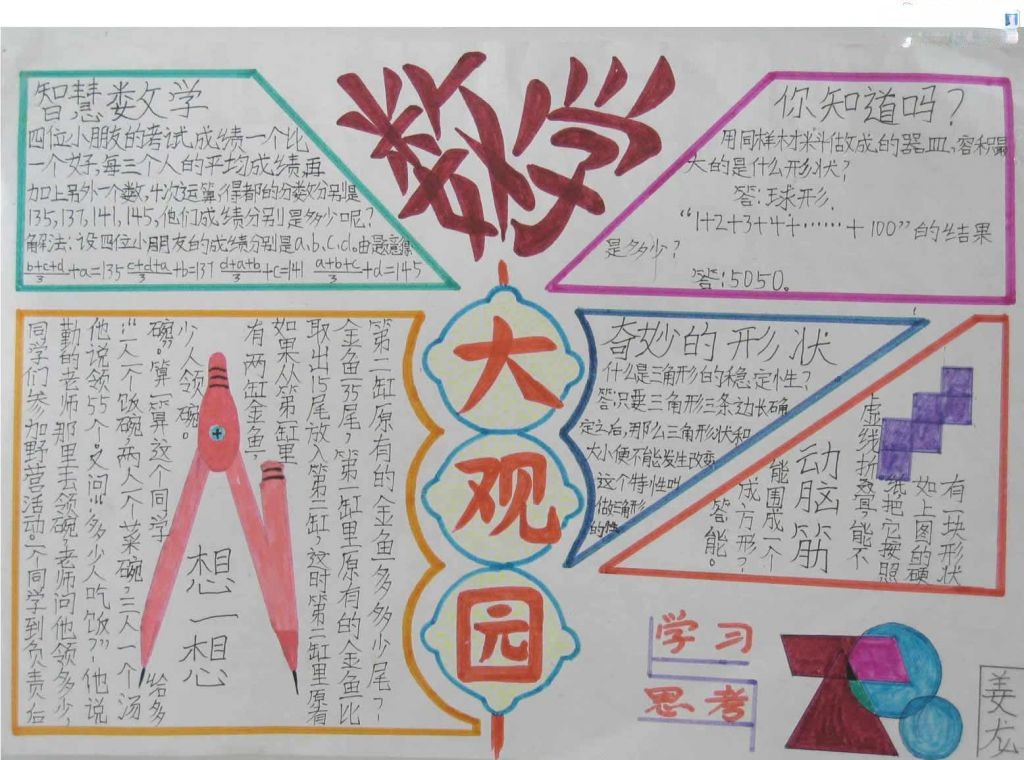 数学
大观园
智慧数学
四位小朋友的考试成绩一个比
一个好,每三个人的平均成绩,再
加上另外一个数,十次运算,得都的分数分别是
135,137,141,145,他们成绩分别是多少呢?
解法:设四位小朋友的成绩分别是a,b,c,d。由题意得
b+c+d/3+a=135 c+d+a/3+b=137 d+a+b/3+c=141 a+b+c/3+d=145
你知道吗?
用同样材料做成的器皿,容积最
大的是什么形状?
答:球形.
“1+2+3+4+……+100”的结果
是多少?
答:5050。
同学们参加野营活动。一个同学到负责后
勤的老师那里去领碗,老师问他领多少,
他说领55个。又问:“多少人吃饭”,他说
:“一人一个饭碗,两人一个菜碗,三人一个汤
碗。算一算这个同学给多
少人领碗。
想一想
有两缸金鱼,
如果从第一缸里
取出15尾放入第二缸,这时第二缸里原有
金鱼35尾,第一缸里原有的金鱼比
第二缸原有的金鱼多多少尾?
奇妙的形状
什么是三角形的稳定性?
答:只要三角形三条边长确
定之后,那么三角形状和
大小便不能发生改变,
这个特性叫
做三角形
的
动脑筋
有一块形状
如上图的硬
纸把它按照
虚线折叠,能不
能围成一个
成方形?
答:能。
学习
思考
姜龙